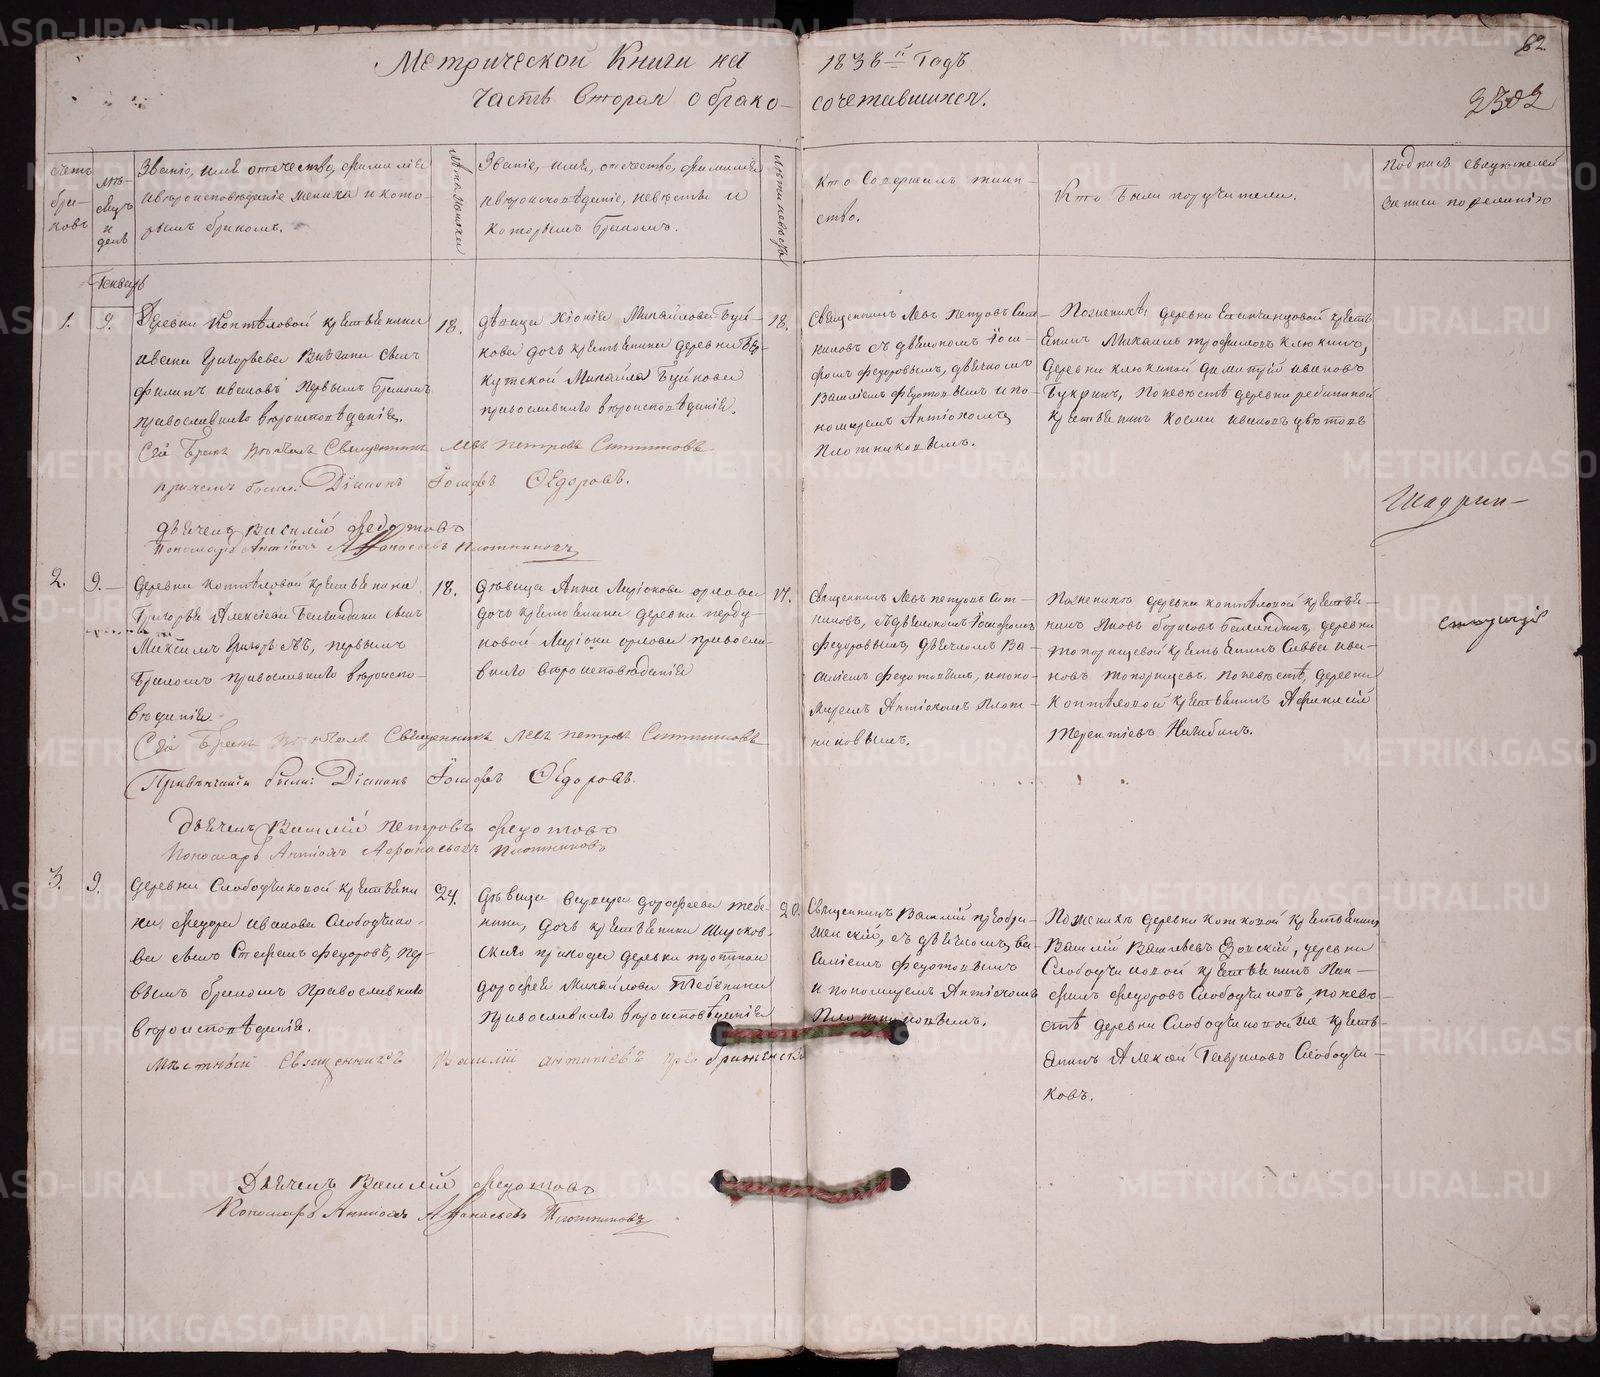 Метрической Книги на 1838й Годъ
62
Часть Вторая о брако-сочетавшихся.
2302
Счетъ браковъ
Мѣсяцъ и день
Званіе, имя отечество, фамилія
и вѣроисповѣданіе жениха и кото-
рымъ бракомъ.
Лѣта жениха
Званіе, имя, отечество, фамилія
и вѣроисповѣданіе, невѣсты и
которымъ бракомъ.
Лѣта невѣсты
Кто Совершалъ таин-
ство.
Кто были поручители.
Подпись свидѣтелей
записи по желанію
Генварь
1.
9.
Деревни Коптѣловой крестьянина
Ивана Григорьева сынъ
Филипъ Ивановъ первымъ бракомъ
православнаго вѣроисповѣданія.
18.
дѣвица Хіонія Михайлова Буй-
нова дочь крестьянина деревни
Михайла Буйнова
православнаго вѣроисповѣданія.
18.
Священникъ Левъ Петровъ Сит-
никовъ съ дѣякономъ Іоси-
фомъ Федоровымъ, дѣячкомъ
Василіемъ Федотовымъ и по-
номаремъ Антіохомъ
Плотниковымъ.
По женихѣ, деревни крестья-
нинъ Михаилъ Трофимовъ Клюкинъ,
деревни Клюкиной Димитрій Ивановъ
Букринъ, по невѣстѣ деревни Рябининой
крестьянинъ Косма Ивановъ
Сей Бракъ Вѣнчалъ Священникъ Левъ Петровъ Ситниковъ
при чемъ были: Діаконъ Іосифъ Ѳедоровъ.
дьячекъ Василій Федотовъ
Пономарь Антіохъ Афонасьевъ Плотниковъ
Шадрин-
2.
9.
Деревни Коптѣловой крестьянина
Григорья Алексѣева сынъ
Максимъ Григорьевъ, первымъ
бракомъ православнаго вѣроиспо-
вѣданія.
18.
дѣвица Анна Ларіонова Орлова
дочь крестьянина деревни Перду-
новой Ларіона Орлова правосла-
внаго вѣроисповѣданія
17.
Священникъ Левъ Петровъ Сит-
никовъ, съ дѣякономъ Іосифомъ
Федоровымъ, дѣячкомъ Ва-
силіемъ Федотовымъ, и поно-
маремъ Антіохомъ Плот-
никовымъ.
По женихѣ деревни Коптѣловой крестья-
нинъ Яковъ Борисовъ деревни
Топорищевой крестьянинъ Савва Ива-
новъ Топорищевъ. По невѣстѣ, деревни
Коптѣловой крестьянинъ
Терентіевъ
Сей Бракъ Вѣнчалъ Священникъ Левъ Петровъ Ситниковъ
При вѣнчаніи были: Діаконъ Іосифъ Ѳедоровъ
Дьячекъ Василій Петровъ Федотовъ
Пономарь Антіохъ Афанасьевъ Плотниковъ
3.
9.
Деревни Слободчиковой крестьяни-
на Федора Иванова Слободчико-
ва сынъ Стефанъ Федоровъ, пер-
вымъ бракомъ православнаго
вѣроисповѣданія.
24.
дѣвица Дорофеева Тебе-
нина, дочь крестьянина
прихода деревни
Дорофея Михайлова Тебенина
православнаго вѣроисповѣданія
20.
Священникъ Василій Преобра-
женскій, съ дѣячкомъ Ва-
силіемъ Федотовымъ
и пономаремъ Антіохомъ
Плотниковымъ.
По женихѣ деревни Котковой крестьянинъ
Василій Васильевъ деревни
Слободчиковой крестьянинъ Пан-
филъ Федоровъ Слободчиковъ, по невѣ-
стѣ деревни Слободчиковой же кресть-
янинъ Алексѣй Гавриловъ Слободчи-
ковъ.
Мѣстный Священникъ Василій Антипіевъ Преображенскій
Дьячекъ Василій Федотовъ
Пономарь Антіохъ Афанасьевъ Плотниковъ